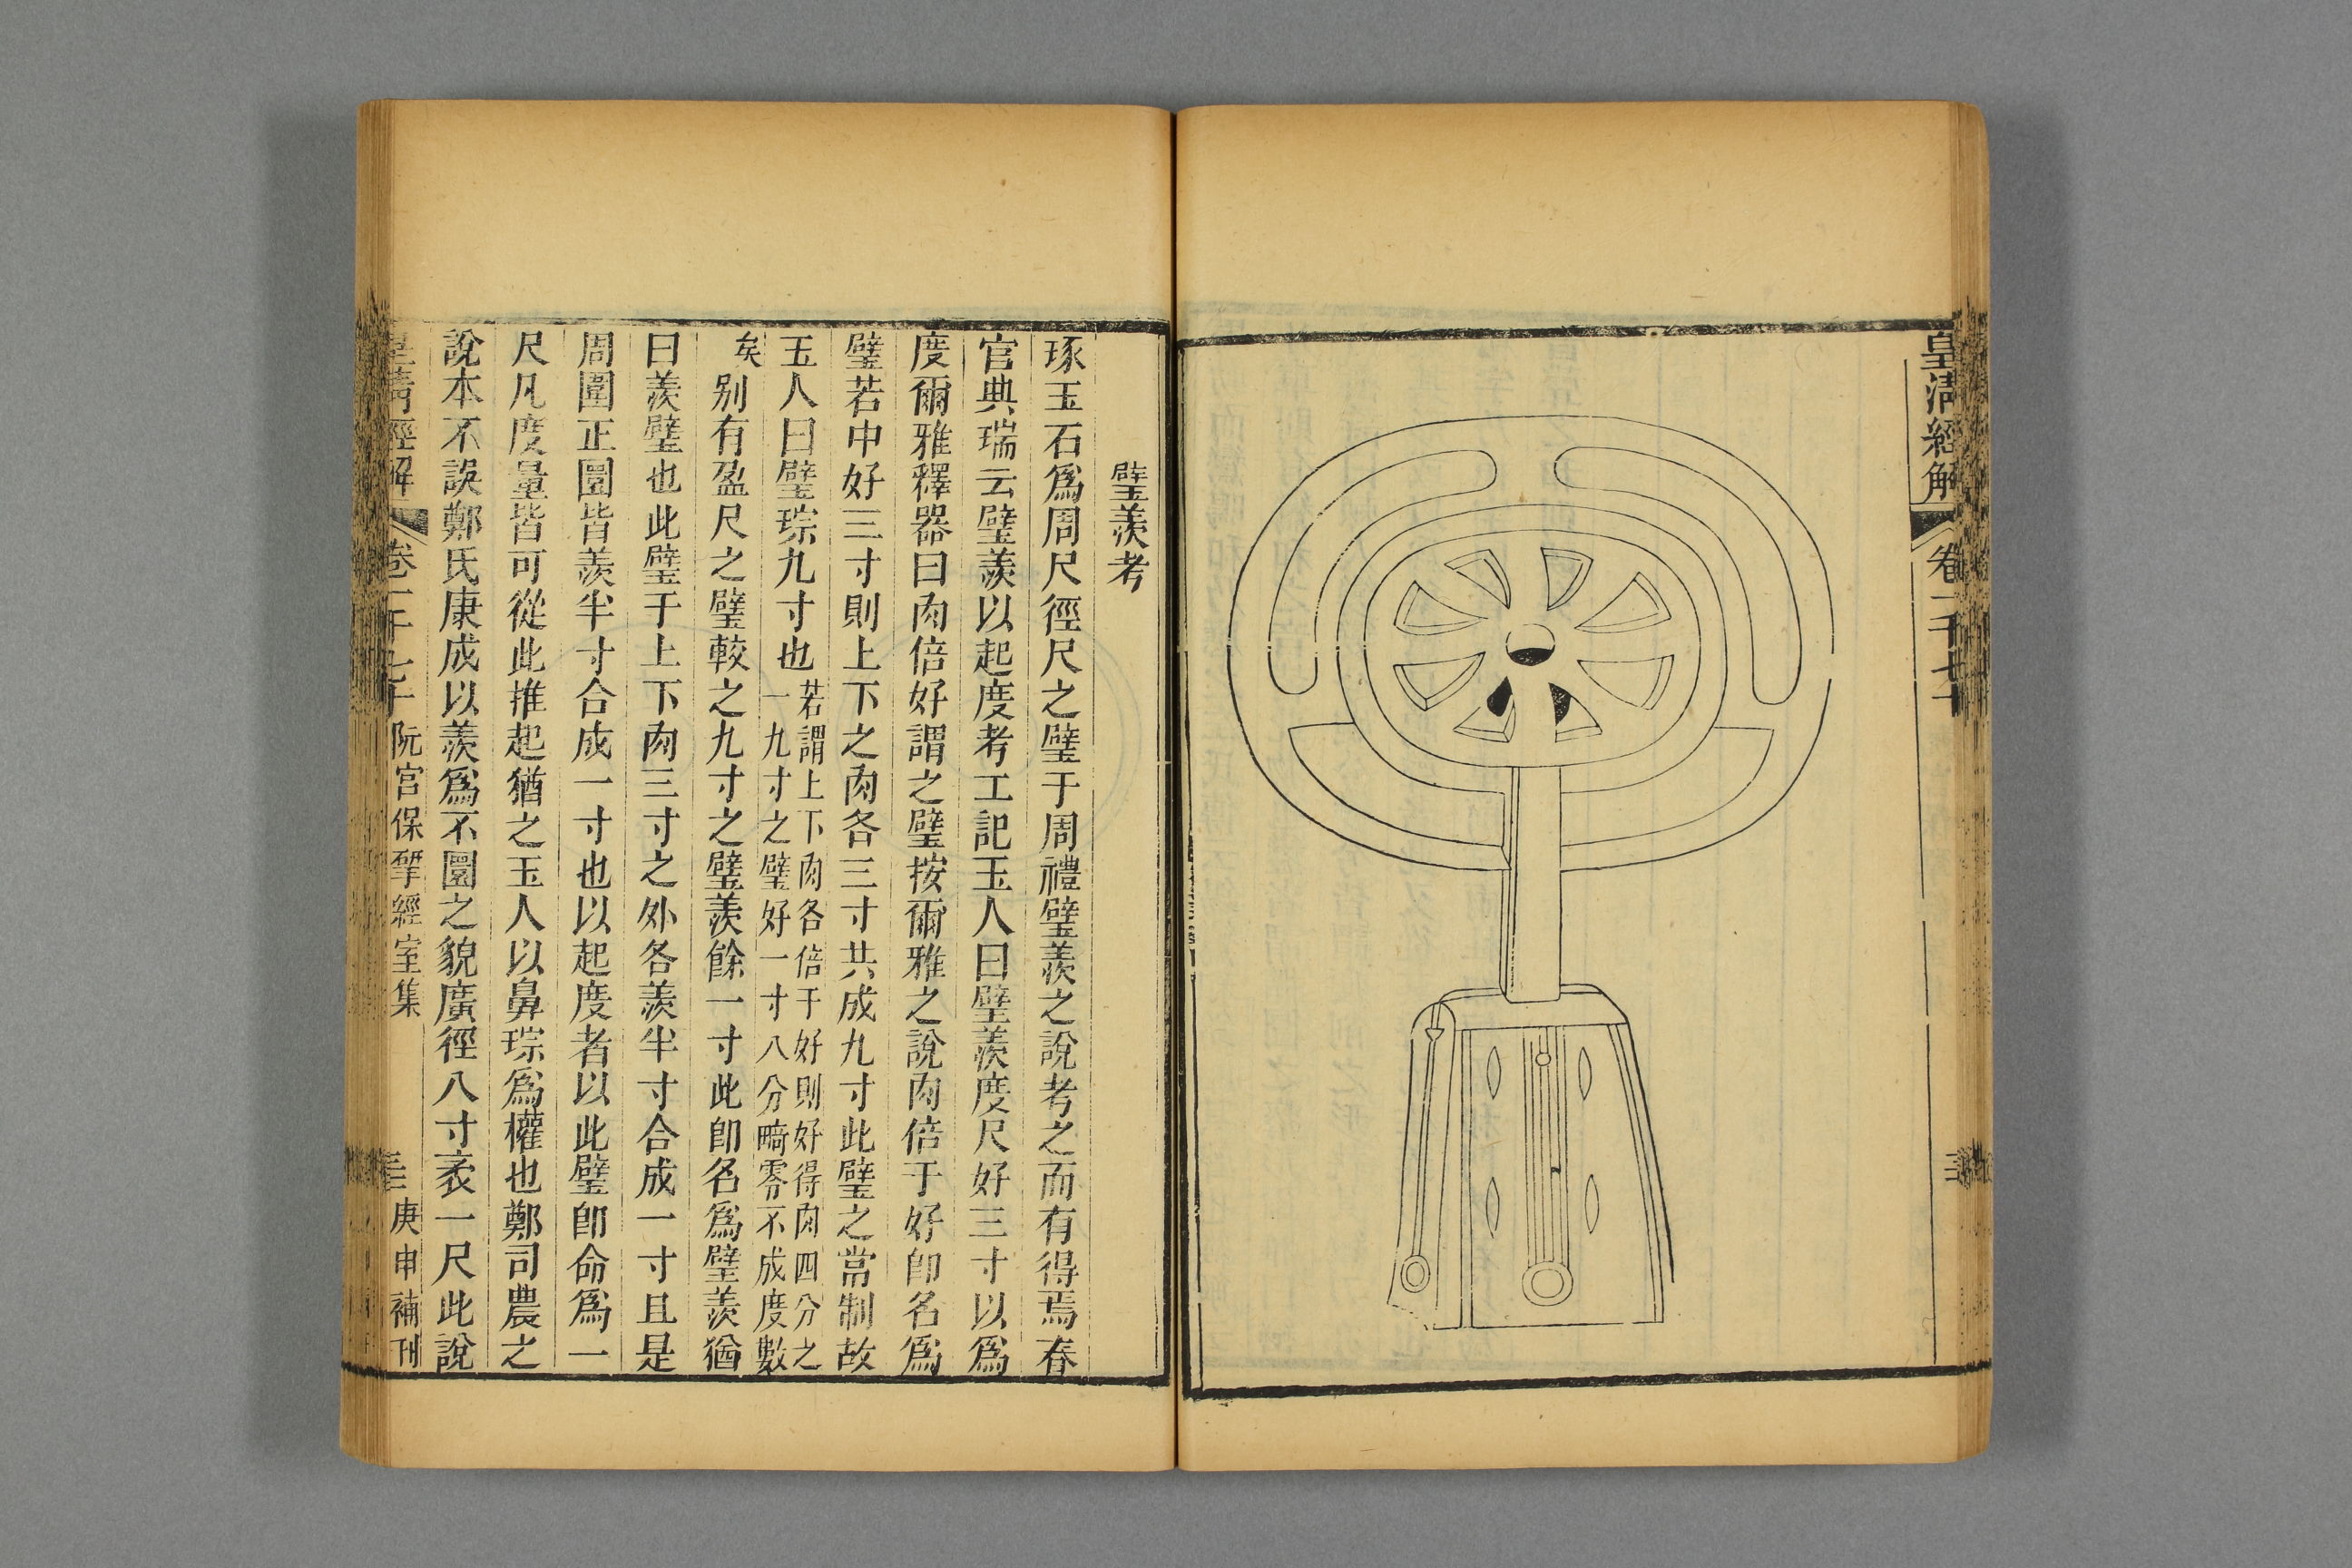 皇清經解
卷一千七十
璧羨考
琢玉石爲周尺徑尺之璧于周禮璧羨之說考之而有得焉春
官典瑞云璧羨以起度考工記玉人曰璧羨度尺好三寸以爲
度爾雅釋器曰肉倍好謂之璧按爾雅之說肉倍于好卽名爲
璧若中好三寸則上下之肉各三寸共成九寸此璧之常制故
玉人曰璧琮九寸也
若謂上下肉各倍于好則好得肉四分之
一九寸之璧好一寸八分畸零不成度數
矣
別有盈尺之璧較之九寸之璧羨餘一寸此卽名爲璧羨猶
曰羨璧也此璧于上下肉三寸之外各羨半寸合成一寸且是
周圍正圜皆羨半寸合成一寸也以起度者以此璧卽命爲一
尺凡度量皆可從此推起猶之玉人以鼻琮爲權也鄭司農之
說本不誤鄭氏康成以羨爲不圜之貌廣徑八寸袤一尺此說
皇清經解
卷一千七十
阮宮保揅經室集
庚申補刊